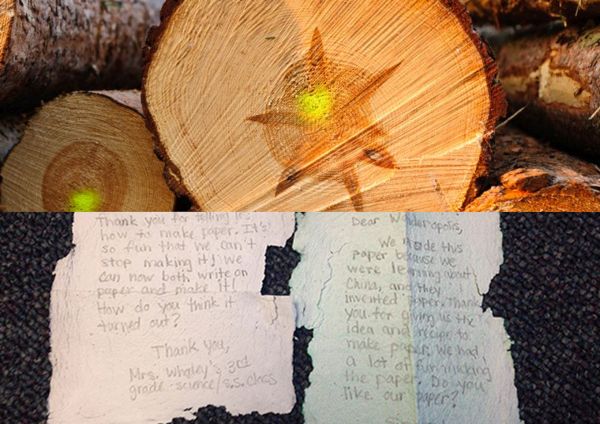 Thank you for telling us
how to make paper. It's
so fun that we can't
stop making it! We
can now both write on
paper and make it!
How do you think it
turned out?
Thank you,
Mrs. Whaley's 3rd
grade science/s.s. class
Dear Wonderopolis,
We made this
paper because we
were learning about
China, and they
invented paper. Thank
you for giving us the
idea and recipe to
make paper. We had
a lot of fun making
the paper. Do you
like our paper?